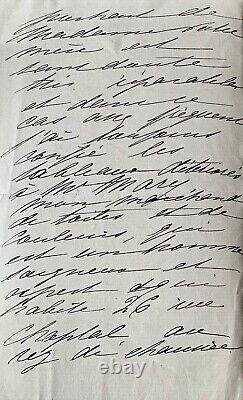 portrait de
Madame votre
mère est
sans doute
très réparable
et dans le
cas
j'ai toujours
confié les
tableaux détériorés
à Mr Mary
mon marchand
de toiles et de
couleurs, qui
est un homme
soigneux et
expert et qui
habite 26 rue
Chaptal au
rez de chaussée.